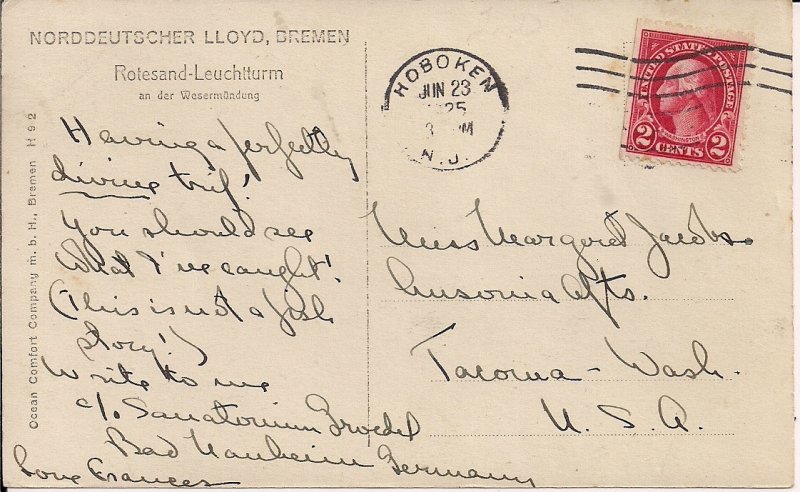 NORDDEUTSCHER LLOYD, BREMEN
Rotesand-Leuchtturm
an der Wesermündung
Ocean Comfort Company m. b. H., Bremen H 92
Having a perfectly
divine trip!
You should see
what I've caught!
(This is not a fish
story!)
Write to me
c/o Sanatorium Groedel
Bad Nauheim Germany
Love Frances
HOBOKEN
JUN 23
1925
3 PM
N. J.
UNITED STATES POSTAGE
WASHINGTON
2 CENTS 2
Miss Margaret Jacobs.
Ansonia Apts.
Tacoma - Wash.
U. S. A.